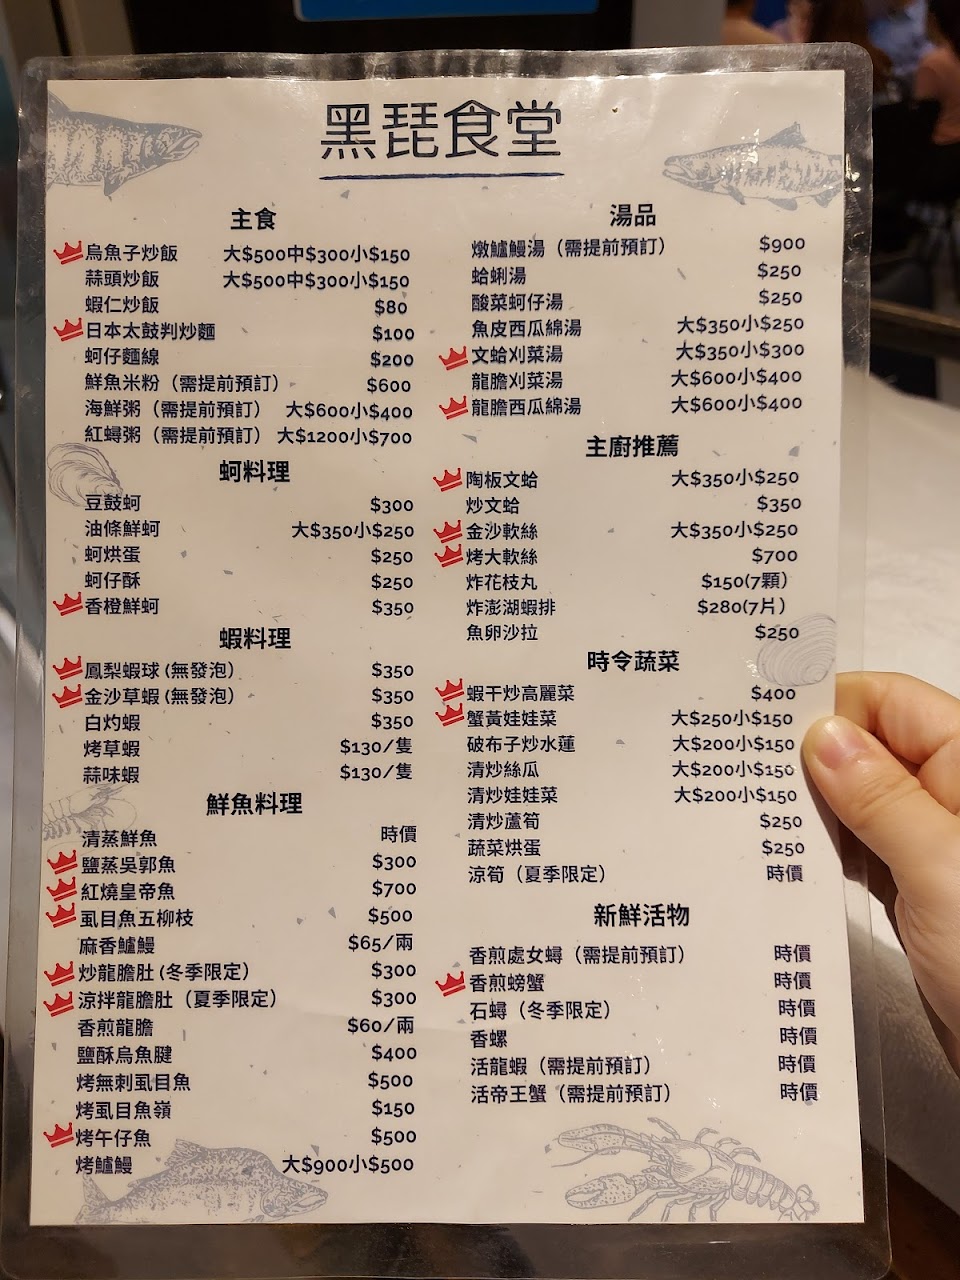 黑琵食堂
主食
烏魚子炒飯 大$500中$300小$150
蒜頭炒飯 大$500中$300小$150
蝦仁炒飯 $80
日本太鼓判炒麵 $100
蚵仔麵線 $200
鮮魚米粉（需提前預訂） $600
海鮮粥（需提前預訂） 大$600小$400
紅蟳粥（需提前預訂） 大$1200小$700
蚵料理
豆鼓蚵 $300
油條鮮蚵 大$350小$250
蚵烘蛋 $250
蚵仔酥 $250
香橙鮮蚵 $350
蝦料理
鳳梨蝦球 (無發泡) $350
金沙草蝦 (無發泡) $350
白灼蝦 $350
烤草蝦 $130/隻
蒜味蝦 $130/隻
鮮魚料理
清蒸鮮魚 時價
鹽蒸吳郭魚 $300
紅燒皇帝魚 $700
虱目魚五柳枝 $500
麻香鱸鰻 $65/兩
炒龍膽肚 (冬季限定) $300
涼拌龍膽肚（夏季限定） $300
香煎龍膽 $60/兩
鹽酥烏魚腱 $400
烤無刺虱目魚 $500
烤虱目魚嶺 $150
烤午仔魚 $500
烤鱸鰻 大$900小$500
湯品
燉鱸鰻湯（需提前預訂） $900
蛤蜊湯 $250
酸菜蚵仔湯 $250
魚皮西瓜綿湯 大$350小$250
文蛤刈菜湯 大$350小$300
龍膽刈菜湯 大$600小$400
龍膽西瓜綿湯 大$600小$400
主廚推薦
陶板文蛤 大$350小$250
炒文蛤 $350
金沙軟絲 大$350小$250
烤大軟絲 $700
炸花枝丸 $150(7顆）
炸澎湖蝦排 $280(7片）
魚卵沙拉 $250
時令蔬菜
蝦干炒高麗菜 $400
蟹黃娃娃菜 大$250小$150
破布子炒水蓮 大$200小$150
清炒絲瓜 大$200小$150
清炒娃娃菜 大$200小$150
清炒蘆筍 $250
蔬菜烘蛋 $250
涼筍（夏季限定） 時價
新鮮活物
香煎處女蟳（需提前預訂） 時價
香煎螃蟹 時價
石蟳（冬季限定） 時價
香螺 時價
活龍蝦（需提前預訂） 時價
活帝王蟹（需提前預訂） 時價